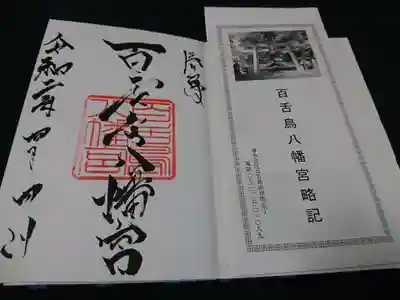 奉拝
百舌鳥八幡宮
令和二年四月四日
百舌鳥八幡宮略記